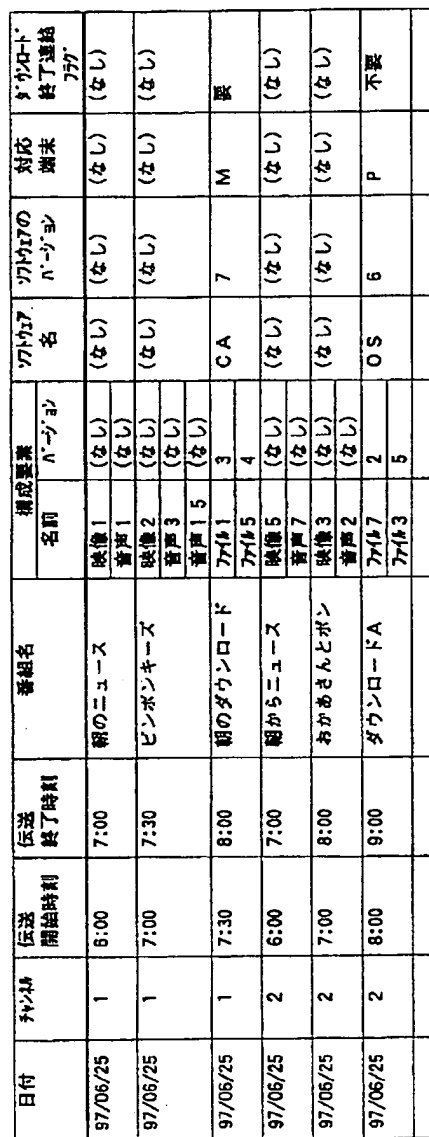 日付 チャンネル 伝送開始時刻 伝送終了時刻 番組名 構成要素 名前 バージョン ソフトウェア名 ソフトウェアのバージョン 対応端末 ダウンロード終了連絡フラグ
97/06/25 1 6:00 7:00 朝のニュース 映像1 (なし) (なし) (なし) (なし) (なし)
音声1 (なし)
97/06/25 1 7:00 7:30 ピンポンキーズ 映像2 (なし) (なし) (なし) (なし) (なし)
音声3 (なし)
音声15 (なし)
97/06/25 1 7:30 8:00 朝のダウンロード ファイル1 3 CA 7 M 要
ファイル5 4
97/06/25 2 6:00 7:00 朝からニュース 映像5 (なし) (なし) (なし) (なし) (なし)
音声7 (なし)
97/06/25 2 7:00 8:00 おかあさんとポン 映像3 (なし) (なし) (なし) (なし) (なし)
音声2 (なし)
97/06/25 2 8:00 9:00 ダウンロードA ファイル7 2 OS 6 P 不要
ファイル3 5